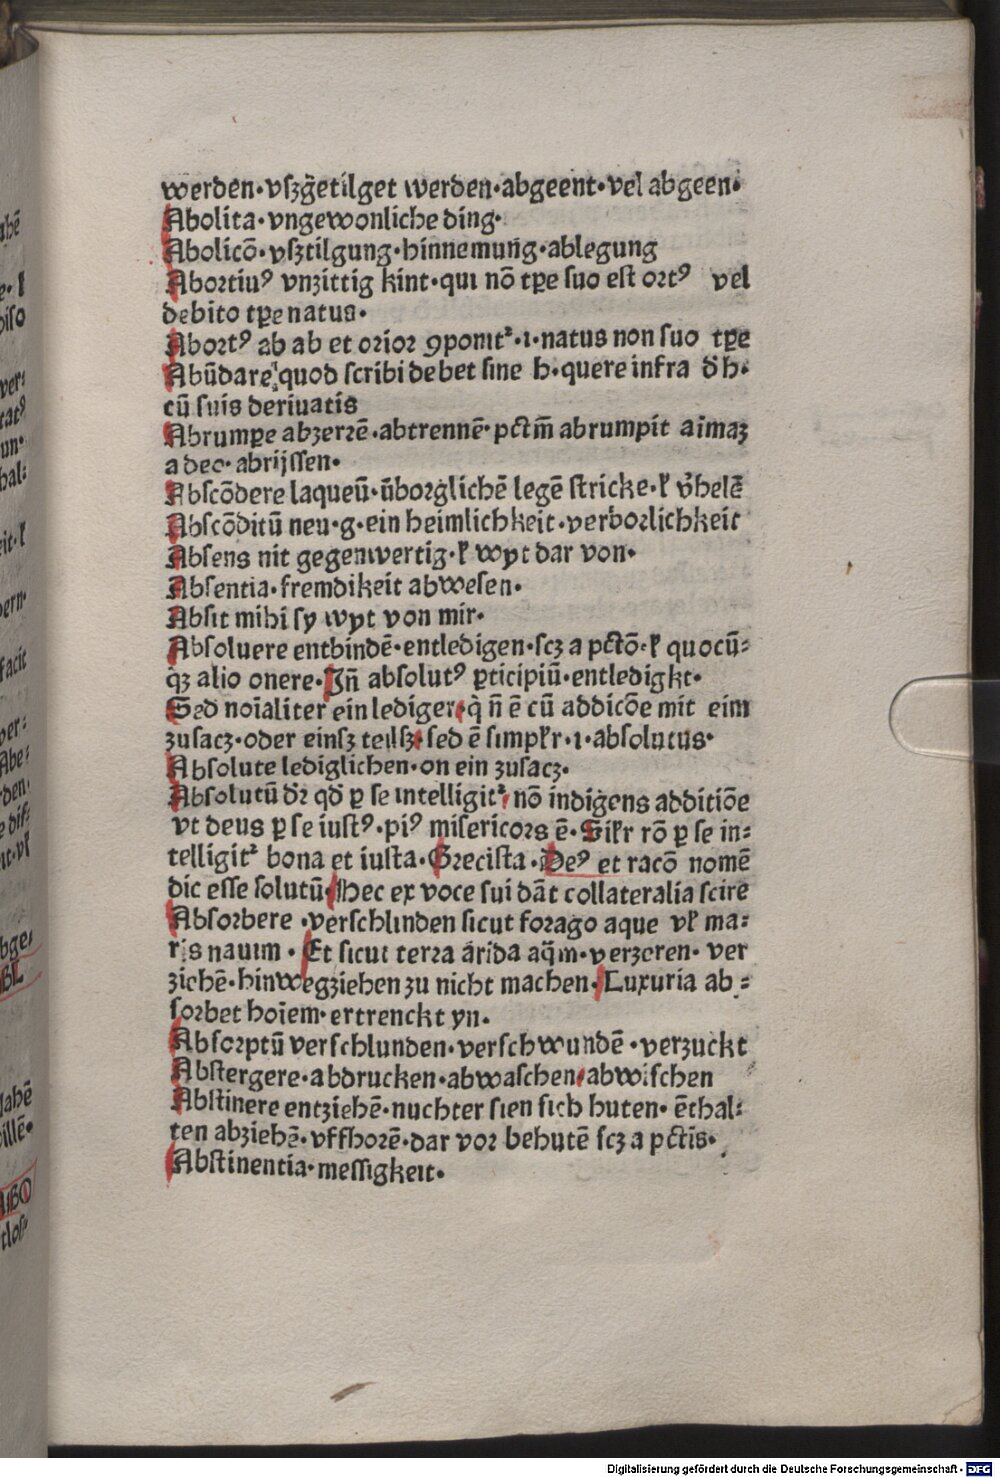 werden·vſzg̃etilget werden·abgeent·vel abgeen·
Abolita·vngewonliche ding·
Abolicõ·vſztilgung·hinnemung·ablegung
Abortiuꝰ vnzittig kint·qui nõ tꝑe ſuo eſt ortꝰ vel
debito tꝑe natus·
Abortꝰ ab ab et orior ꝯponit᷑·i·natus non ſuo tꝑe
Abũdare quod ſcribi debet ſine h·quere infra d̄ h·
cũ ſuis deriuatis
Abrumꝑe abzerrẽ·abtrennẽ·pctm̄ abrumpit aimaꝫ
a deo·abrijſſen·
Abſcõdere laqueũ·v̄borglichẽ legẽ ſtricke·ꝉ v̓helẽ
Abſcõditũ neu·g·ein heimlichkeit·verborlichkeit
Abſens nit gegenwertig·ꝉ wyt dar von·
Abſentia·fremdikeit abweſen·
Abſit mihi ſy wyt von mir·
Abſoluere entbindẽ·entledigen·ſcꝫ a pctõ·ꝉ quocũ⸗
qꝫ alio onere·Jn̄ abſolutꝰ ꝑticipiũ·entledigkt·
Sed noĩaliter ein lediger·q̇ n̄ ē cũ addicõe mit eim
zuſacz·oder einſz teilſz·ſed ē ſimpꝉr·i·abſolutus·
Abſolute lediglichen·on ein zuſacz·
Abſolutũ dr̄ qd̄ ꝑ ſe intelligit᷑ nõ indigens additiõe
vt deus ꝑ ſe iuſtꝰ·piꝰ miſericors ē·Siꝉr rõ ꝑ ſe in⸗
telligit᷑ bona et iuſta·Greciſta·Deꝰ et racõ nomẽ
dic eſſe ſolutũ·Hec ex voce ſui dãt collateralia ſcire
Abſorbere·verſchlinden ſicut forago aque vꝉ ma⸗
ris nauim·Et ſicut terra arida aq̃m·verzeren·ver
ziehẽ·hinwegziehen zu nicht machen·Luxuria ab⸗
ſorbet hoĩem·ertrenckt yn·
Abſorptũ verſchlunden·verſchwundẽ·verzuckt
Abſtergere·abdrucken·abwaſchen·abwiſchen
Abſtinere entziehẽ·nuchter ſien ſich huten·ẽthal⸗
ten abziehẽ·vffhorẽ·dar vor behutẽ ſcꝫ a pctis·
Abſtinentia·meſſigkeit·
Digitalisierung gefördert durch die Deutsche Forschungsgemeinschaft - DFG